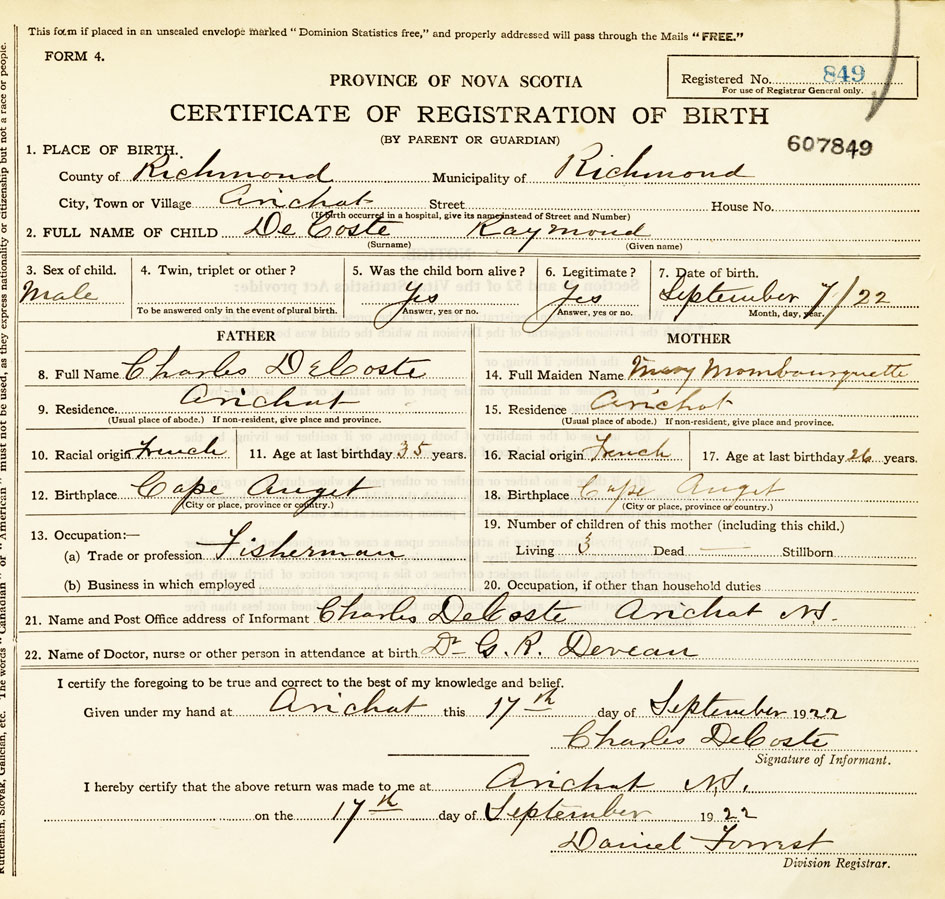 This form if placed in an unsealed envelope marked "Dominion Statistics free," and properly addressed will pass through the Mails "FREE."
FORM 4.
PROVINCE OF NOVA SCOTIA
Registered No. 849
For use of Registrar General only.
CERTIFICATE OF REGISTRATION OF BIRTH
(BY PARENT OR GUARDIAN)
607849
1. PLACE OF BIRTH.
County of Richmond Municipality of Richmond
City, Town or Village Arichat Street House No.
(If birth occurred in a hospital, give its name instead of Street and Number)
2. FULL NAME OF CHILD De Coste Raymond
(Surname) (Given name)
3. Sex of child. 4. Twin, triplet or other? 5. Was the child born alive? 6. Legitimate? 7. Date of birth.
Male Yes Yes September 7/22
To be answered only in the event of plural birth. Answer, yes or no. Answer, yes or no. Month, day, year.
FATHER MOTHER
8. Full Name Charles DeCoste 14. Full Maiden Name Mary Mombourquette
9. Residence Arichat 15. Residence Arichat
(Usual place of abode.) If non-resident, give place and province. (Usual place of abode.) If non-resident, give place and province.
10. Racial origin French 11. Age at last birthday 35 years. 16. Racial origin French 17. Age at last birthday 26 years.
12. Birthplace Cape Auget 18. Birthplace Cape Auget
(City or place, province or country.) (City or place, province or country.)
13. Occupation:— 19. Number of children of this mother (including this child.)
(a) Trade or profession Fisherman Living 3 Dead — Stillborn
(b) Business in which employed 20. Occupation, if other than household duties
21. Name and Post Office address of Informant Charles DeCoste Arichat NS.
22. Name of Doctor, nurse or other person in attendance at birth Dr G. R. Deveau
I certify the foregoing to be true and correct to the best of my knowledge and belief.
Given under my hand at Arichat this 17th day of September 1922
Charles DeCoste
Signature of Informant.
I hereby certify that the above return was made to me at Arichat N.S.
on the 17th day of September 1922
Daniel Forrest
Division Registrar.